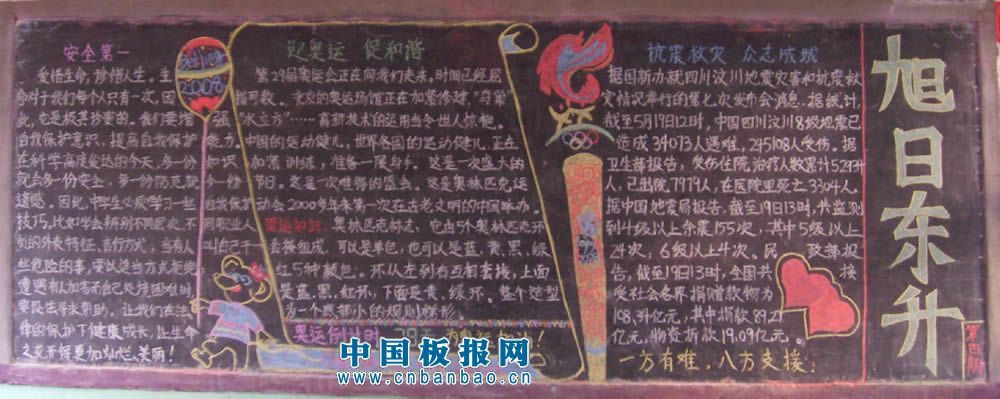 安全第一
爱惜生命,珍惜人生。生
命对于我们每个人只有一次,因
此,它是极其珍重的。我们要增强
自我保护意识,提高自我保护能力。
在科学高度发达的今天,多一份知识
就会多一份安全,多一份防范就少一份
遗憾。因此,中学生必须学习一些自我保护
技巧。比如学会辨别不同层次、不同职业人
的外表特征、言行方式,当有人叫自己干一
些危险的事,要以适当方式拒绝
遭遇有人加害于自己处境困难时
要设法寻求帮助,让我们在法
律的保护下健康成长,让生命
之花开得更加灿烂、美丽!
Beijing
2008
迎奥运 促和谐
第29届奥运会正在向我们走来,时间已经屈
指可数。北京的奥运场馆正在加紧修建,“鸟巢”
“水立方”……高新技术的运用当令世人惊艳。
中国的运动健儿,世界各国的运动健儿,正在
加紧训练,准备一展身手。这是一次盛大的
节日。这是一次难得的盛会。这是奥林匹克运
动会2000多年来第一次在古老文明的中国举办。
奥运知识:奥林匹克标志,它由5个奥林匹克环
套接组成,可以是单色,也可以是蓝、黄、黑、绿、
红5种颜色。环从左到右互相套接,上面
是蓝、黑、红环,下面是黄、绿环。整个造型
为一个底部小的规则梯形。
奥运倒计时
抗震救灾 众志成城
据国新办就四川汶川地震灾害和抗震救
灾情况举行的第七次发布会消息,据统计,
截至5月19日12时,中国四川汶川8级地震已
造成34073人遇难,245108人受伤。据
卫生部报告,受伤住院治疗人数累计52934
人,已出院7979人,在医院里死亡3304人。
据中国地震局报告,截至19日13时,共监测
到4级以上余震155次,其中5级以上
24次,6级以上4次。民政部报
告,截至19日13时,全国共接
受社会各界捐赠款物为
108.34亿元,其中捐款89.27
亿元,物资折款19.09亿元。
一方有难,八方支援!
旭日东升
第四期
中国板报网
www.cnbanbao.cn